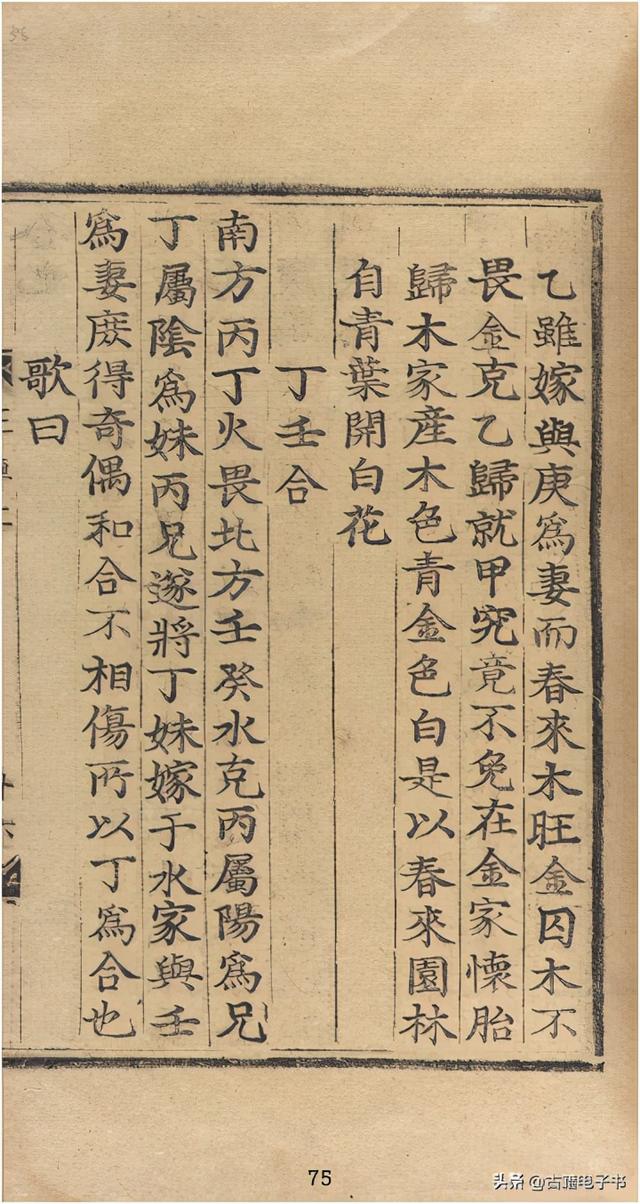 乙雖嫁與庚爲妻而春來木旺金囚木不
畏金克乙歸就甲究竟不免在金家懷胎
歸木家產木色青金色白是以春來園林
自青葉開白花
丁壬合
南方丙丁火畏北方壬癸水克丙屬陽爲兄
丁屬陰爲妹丙兄遂將丁妹嫁于水家與壬
爲妻庶得奇偶和合不相傷所以丁爲合也
歌曰
75
头条 @古籍电子书